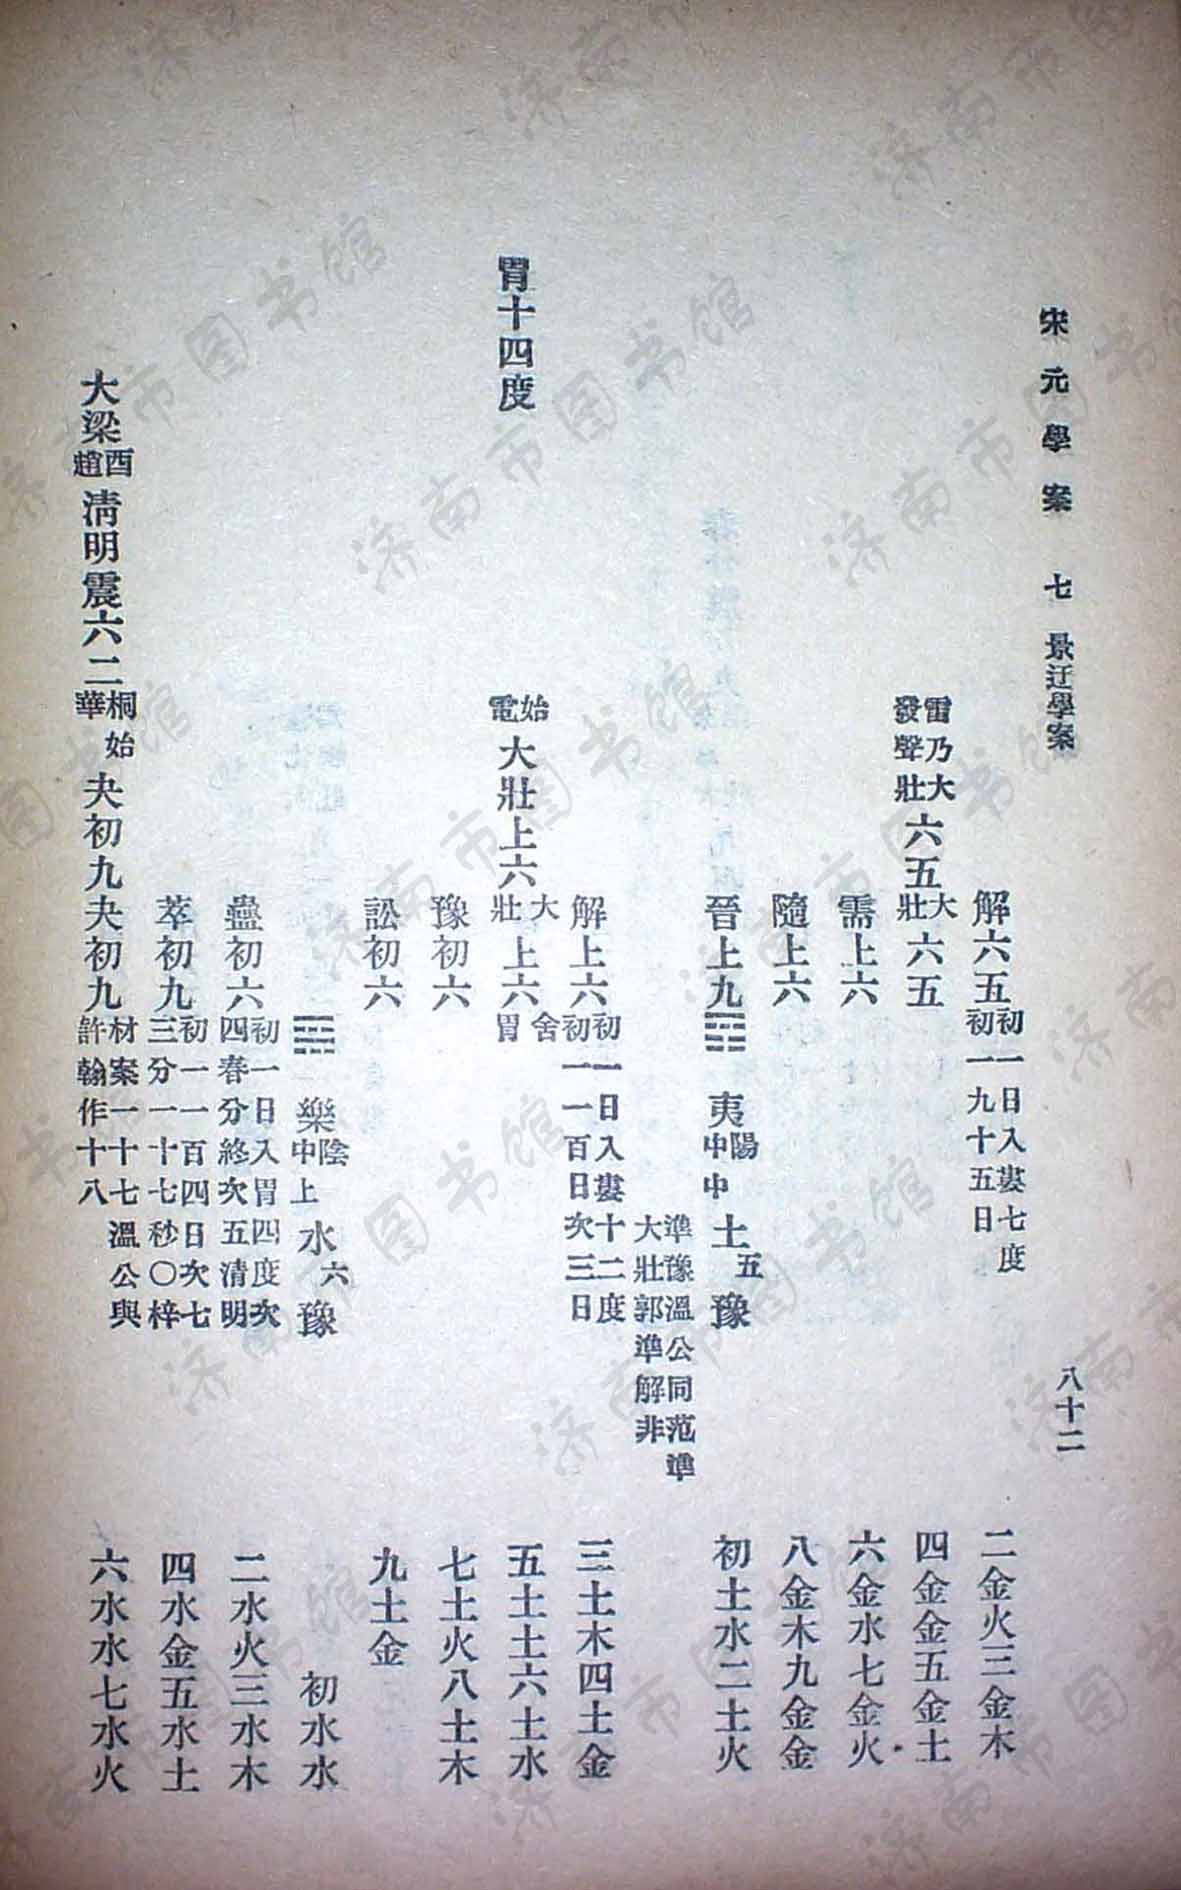 宋元學案 七 景迂學案 八十二
解六五 初一日入婁七度初一九十五日 二金火三金木
雷乃發聲 大壯六五 大壯六五 四金金五金土
需上六 六金水七金火
隨上六 八金木九金金
晉上九 夷 陽中中 土五 豫 初土水二土火
準豫溫公同范準大壯郭準解非
解上六 初一日入婁十二度初一一百日次三日 三土木四土金
胃十四度 始電 大壯上六 大壯上六 舍胃 五土土六土水
豫初六 七土火八土木
訟初六 九土金
樂 陰中上 水六 豫 初水水
蠱初六 初一日入胃四度次四春分終次五清明 二水火三水木
萃初九 初一一百四日次七三分一十七秒〇梓 四水金五水土
大梁 酉趙 清明震六二 桐始華 夬初九 夬初九 材案一十七溫公與許翰作十八 六水水七水火
济南市图书馆